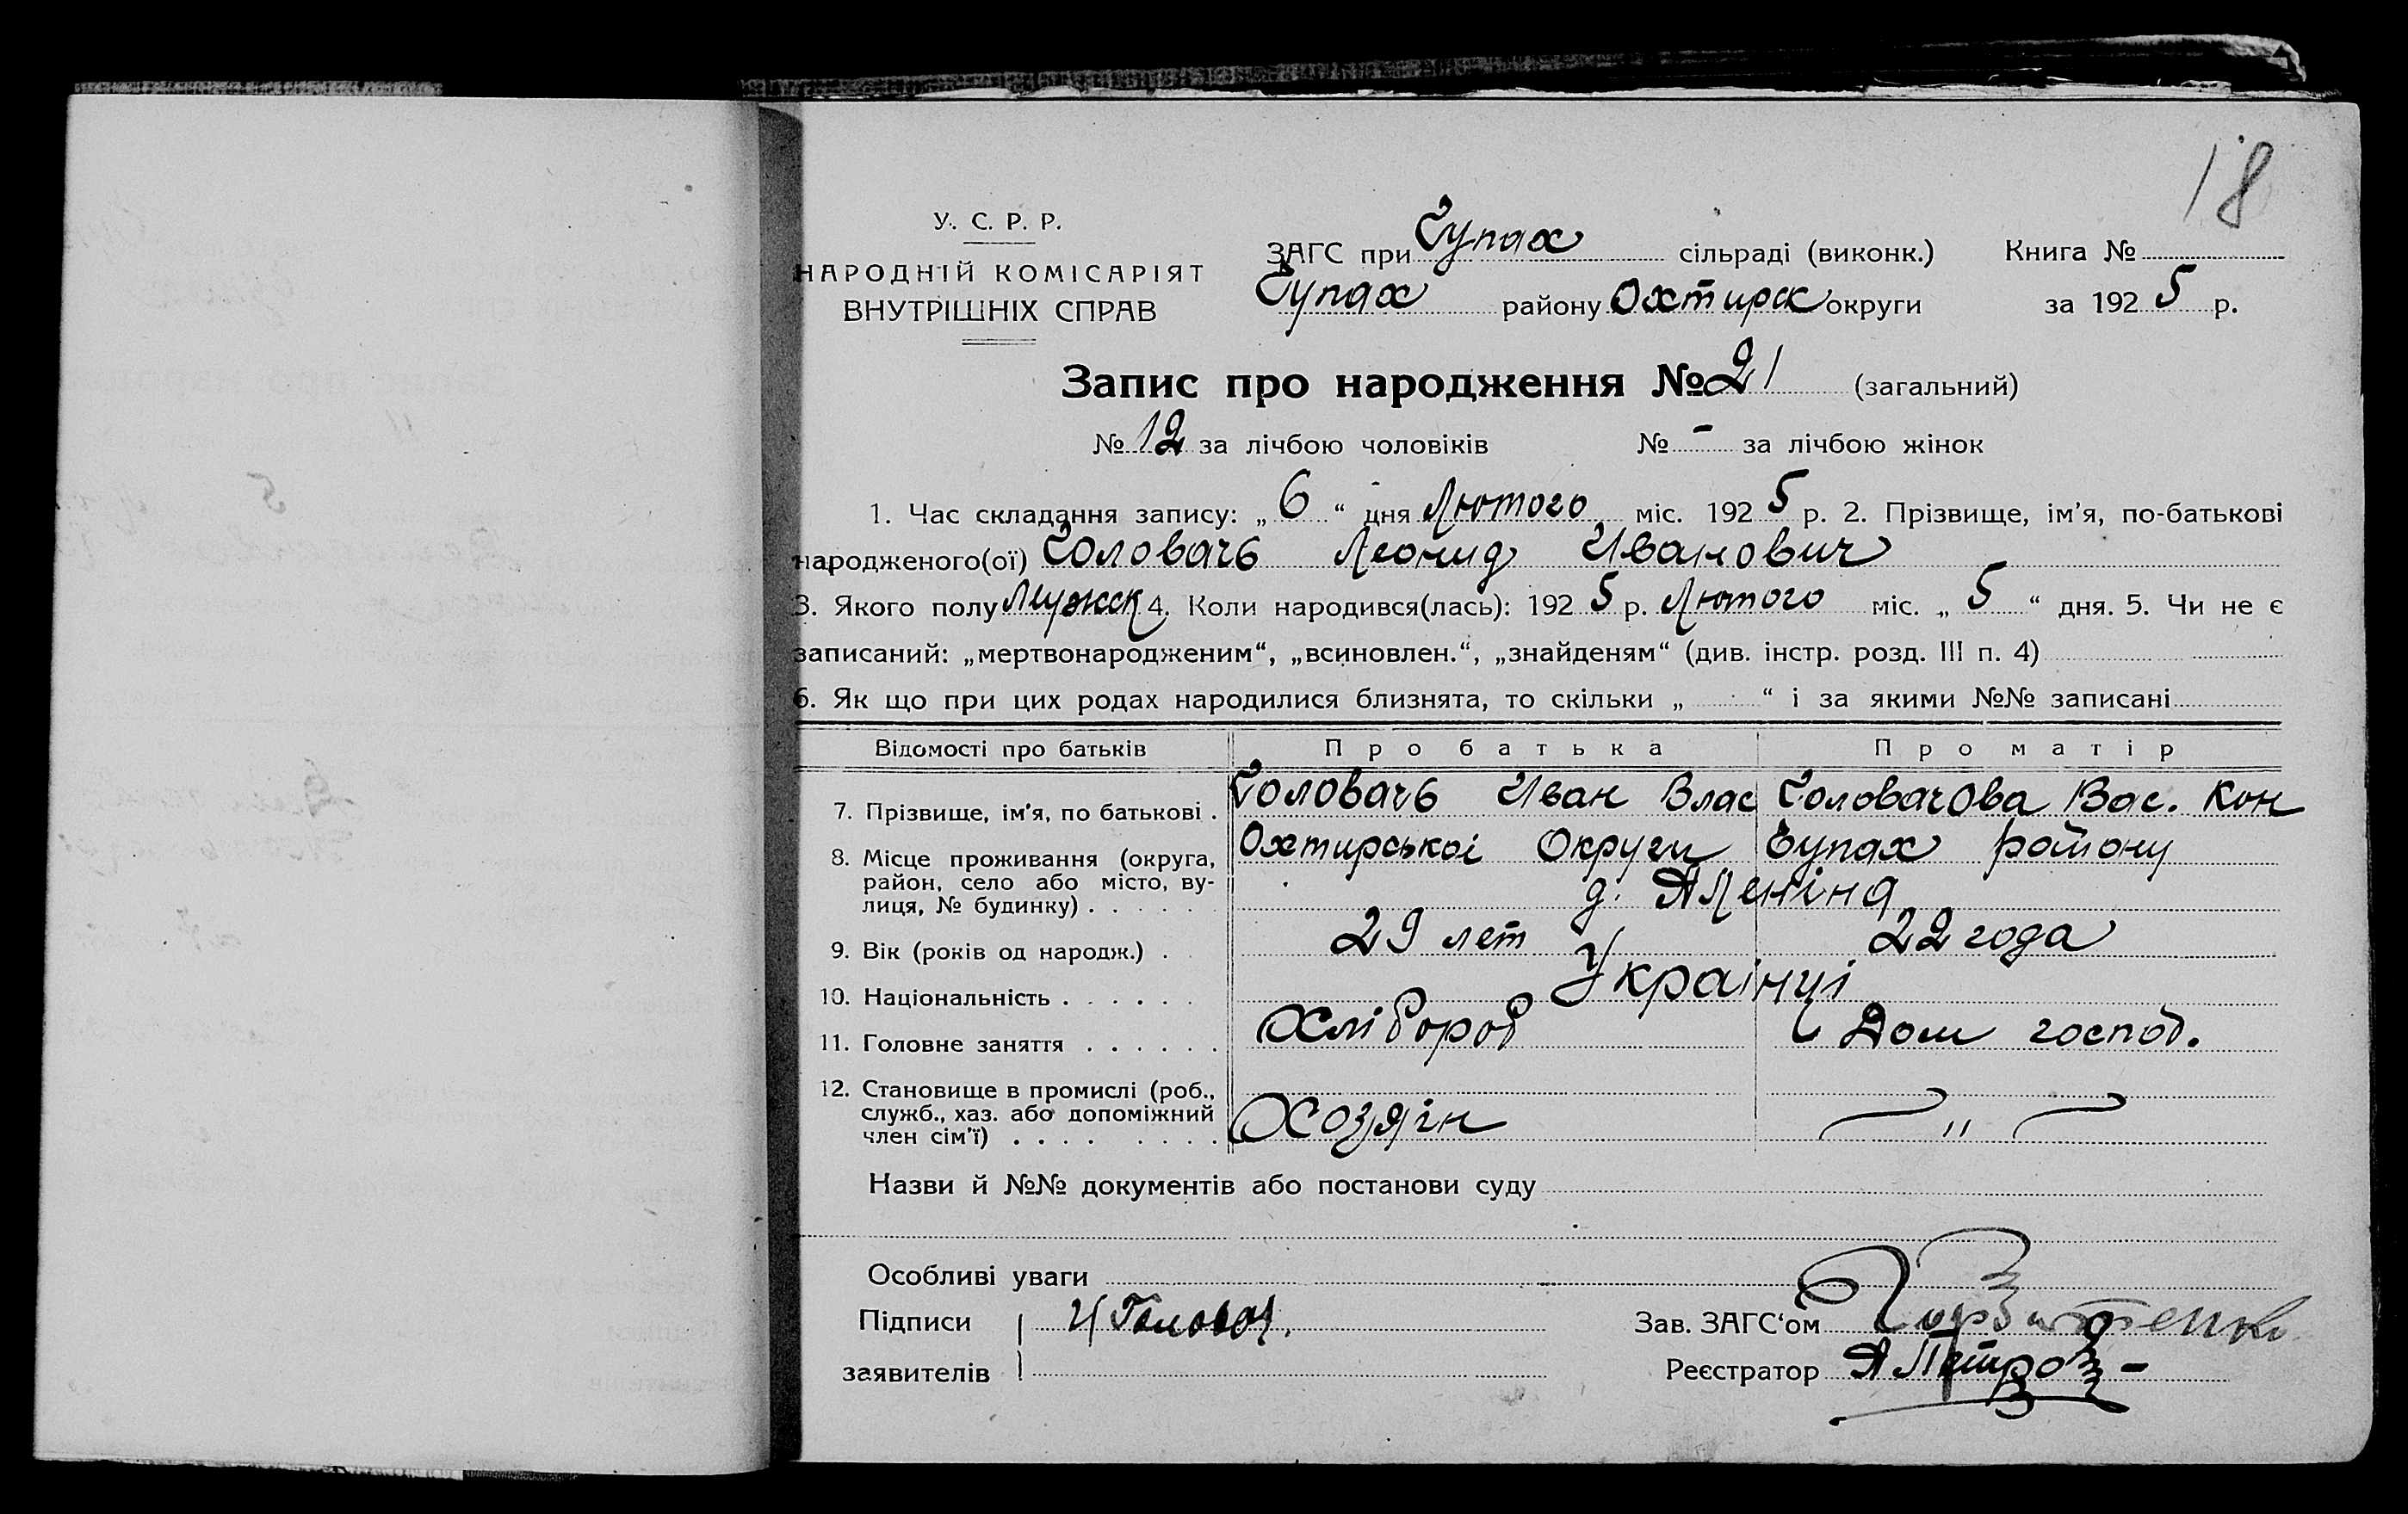 18
У. С. Р. Р.
НАРОДНІЙ КОМІСАРІЯТ
ВНУТРІШНІХ СПРАВ
ЗАГС при Чупах сільраді (виконк.) Книга №
Чупах району Охтирск округи за 1925 р.
Запис про народження № 21 (загальний)
№ 12 за лічбою чоловіків № - за лічбою жінок
1. Час складання запису: „6“ дня Лютого міс. 1925 р. 2. Прізвище, ім’я, по-батькові
народженого(ої) Головачь Леонид Иванович
3. Якого полу Мужск 4. Коли народився(лась): 1925 р. Лютого міс. „5“ дня. 5. Чи не є
записаний: „мертвонародженим“, „всиновлен.“, „знайденям“ (див. інстр. розд. III п. 4)
6. Як що при цих родах народилися близнята, то скільки „ “ і за якими №№ записані
Відомості про батьків Про батька Про матір
7. Прізвище, ім’я, по батькові . Головачь Иван Влас Головачова Вас. Кон
8. Місце проживання (округа, Охтирськоі Округи Чупах району
район, село або місто, ву-
лиця, № будинку) . . . . . .
9. Вік (років од народж.) . . 29 лет 22 года
10. Національність . . . . . . Украінці
11. Головне заняття . . . . . . Хлібороб Дом господ.
12. Становище в промислі (роб.,
служб., хаз. або допоміжний
член сім’ї) . . . . . . . . Хозяін — " —
Назви й №№ документів або постанови суду
Особливі уваги
Підписи И Головач. Зав. ЗАГС‘ом
заявителів Реєстратор